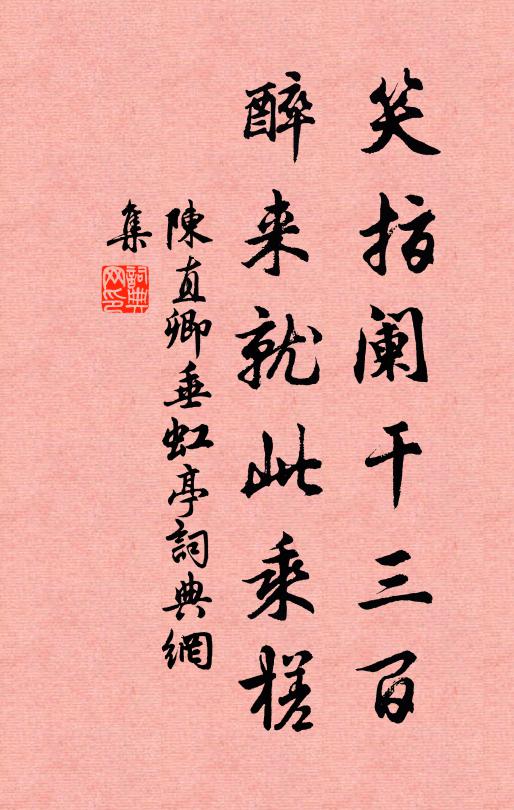 笑指阑干三百
醉来就此乘槎
陳直卿垂虹亭詞典網
集
詞典網印